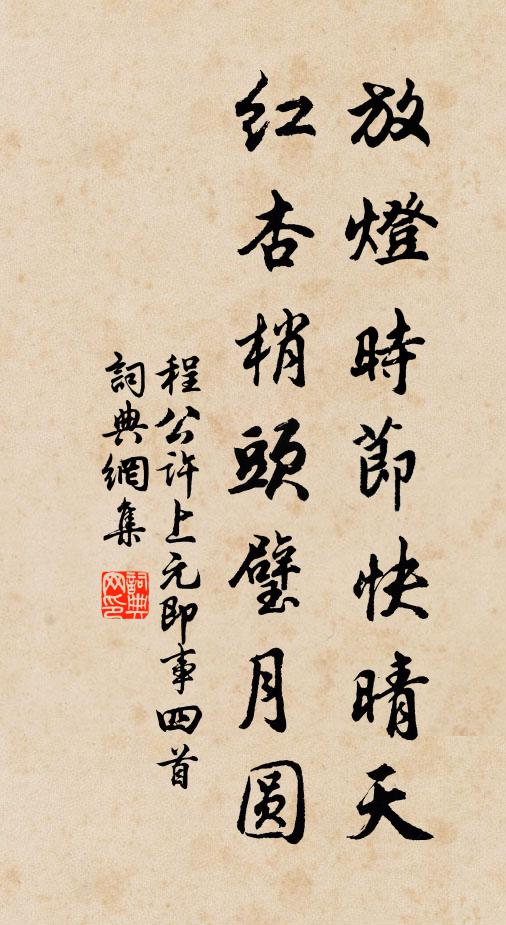 放燈時節快晴天
紅杏梢頭璧月圓
程公許上元即事四首
詞典網集
詞典网印